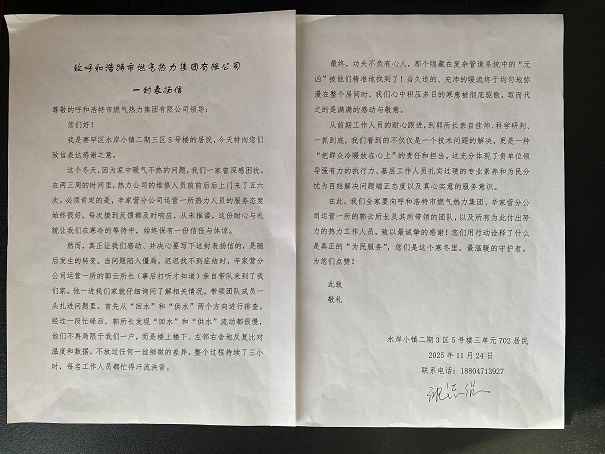 致呼和浩特市燃气热力集团有限公司
一封表扬信
尊敬的呼和浩特市燃气热力集团有限公司领导：
您们好！
我是赛罕区水岸小镇二期三区5号楼的居民，今天特向您们
致信表达感谢之意。
这个冬天，因为家中暖气不热的问题，我们一家曾深感困扰。
在两三周的时间里，热力公司的维修人员前前后后上门来了五六
次。必须肯定的是，辛家营分公司运营一所热力人员的服务态度
始终很好，每次接到反馈都及时响应，从未推诿。这份耐心与礼
貌让我们在寒冷的等待中，始终保有一份信任与体谅。
然而，真正让我们感动、并决心要写下这封表扬信的，是随
后发生的转变。当问题陷入僵局，迟迟找不到症结时，辛家营分
公司运营一所的郭云所长（事后打听才知道）亲自带队来到了我
们家。他一进我们家就仔细询问了解相关情况，带领团队成员一
头扎进问题里。首先从“回水”和“供水”两个方向进行排查。
经过一段忙碌后，郭所长发现“回水”和“供水”流动都很慢，
他们不再局限于我们一户，而是楼上楼下、左邻右舍地反复比对
温度和数据，不放过任何一丝细微的差异。整个过程持续了三小
时，每名工作人员都忙得汗流浃背。
最终，功夫不负有心人，那个隐藏在复杂管道系统中的“元
凶”被他们精准地找到了！当久违的、充沛的暖流终于均匀地弥
漫在整个房间时，我们心中积压多日的寒意被彻底驱散，取而代
之的是满满的感动与敬意。
从前期工作人员的耐心跟进，到郭所长亲自挂帅、科学研判、
一抓到底，我们看到的不仅仅是一个技术问题的解决，更是一种
“把群众冷暖放在心上”的责任和担当。这充分体现了贵单位领
导强有力的执行力、基层工作人员扎实过硬的专业素养和为民分
忧为百姓解决问题端正态度以及真心实意的服务意识。
在此，我们全家要向呼和浩特市燃气热力集团、辛家营分公
司运营一所的郭云所长及其所带领的团队，以及所有为此付出努
力的热力工作人员，致以最诚挚的感谢！您们用行动诠释了什么
是真正的“为民服务”，您们是这个寒冬里，最温暖的守护者。
为您们点赞！
此致
敬礼
水岸小镇二期3区5号楼三单元702居民
2025年11月24日
联系电话：18804713927